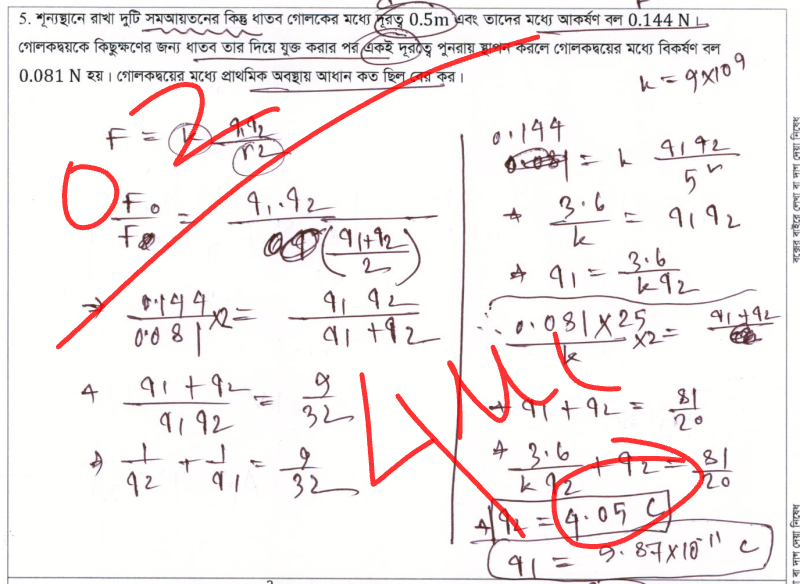 5. শূন্যস্থানে রাখা দুটি সমআয়তনের কিন্তু ধাতব গোলকের মধ্যে দূরত্ব 0.5m এবং তাদের মধ্যে আকর্ষণ বল 0.144 N।
গোলকদ্বয়কে কিছুক্ষণের জন্য ধাতব তার দিয়ে যুক্ত করার পর একই দূরত্বে পুনরায় স্থাপন করলে গোলকদ্বয়ের মধ্যে বিকর্ষণ বল
0.081 N হয়। গোলকদ্বয়ের মধ্যে প্রাথমিক অবস্থায় আধান কত ছিল বের কর।
k = 9×10⁹
F = k q₁q₂ / r²
0
F₀ / F = q₁.q₂ / ((q₁+q₂)/2)
⇒ 0.144 / 0.081 ×2 = q₁ q₂ / (q₁+q₂)
(q₁+q₂) / (q₁q₂) = 9/32
⇒ 1/q₂ + 1/q₁ = 9/32
0.144 = k q₁q₂ / 5²
⇒ 3.6/k = q₁q₂
⇒ q₁ = 3.6 / kq₂
∴ 0.081×25 / k ×2 = q₁+q₂
⇒ q₁+q₂ = 81/20
⇒ 3.6 / kq₂ + q₂ = 81/20
⇒ q₂ = 4.05 C
q₁ = 9.87×10⁻¹¹ C
4μc
বক্সের বাইরে লেখা বা দাগ দেয়া নিষেধ
বা দাগ দেয়া নিষেধ